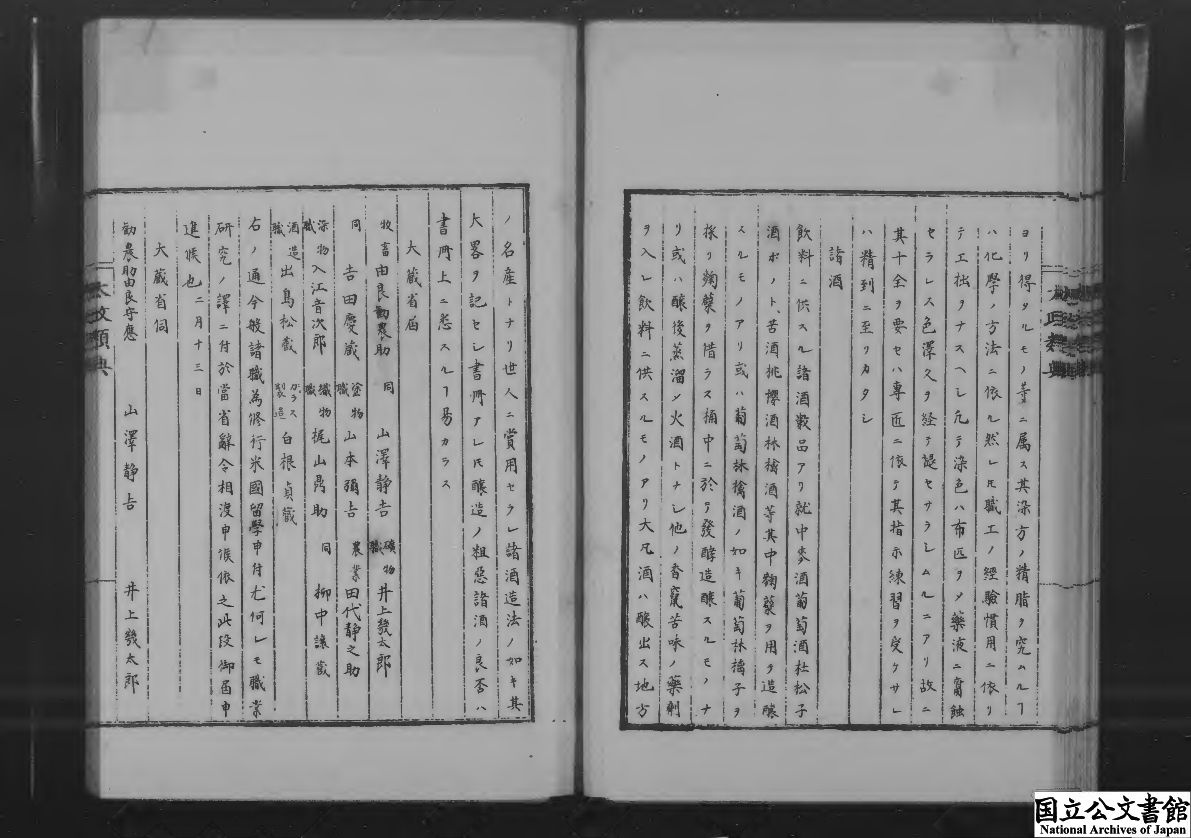 ヨリ得タルモノ等ニ属ス其染方ノ精脂ヲ究ムルヿ
ハ化學ノ方法ニ依ル然レ𪜈職工ノ經驗慣用ニ依リ
テ工拙ヲナスヘシ元テ染色ハ布匹ヲメ藥液ニ腐蝕
セラレス色澤久ヲ経テ褪セサラシムルニアリ故ニ
其十全ヲ要セハ專匠ニ依テ其指示練習ヲ受ケサレ
ハ精到ニ至リカタシ
諸酒
飲料ニ供スル諸酒数品アリ就中麥酒葡萄酒杜松子
酒ボノト、苦酒桃櫻酒林檎酒等其中麹糵ヲ用テ造釀
スルモノアリ或ハ葡萄林檎酒ノ如キ葡萄林檎子ヲ
採リ麹糵ヲ借ラス桶中ニ於テ發酵造釀スルモノナ
リ或ハ釀後蒸溜メ火酒トナレ他ノ香竄苦味ノ藥劑
ヲ入レ飲料ニ供スルモノアリ大凡酒ハ釀出ス地方
太政類典
ノ名産トナリ世人ニ賞用セラレ諸酒造法ノ如キ其
大畧ヲ記セシ書冊アレ𪜈釀造ノ粗惡諸酒ノ良否ハ
書冊上ニ悉スルヿ易カラス
大藏省届
牧畜 由良勸農助 同 山澤静吉 礦物職 井上幾太郎
同 吉田慶藏 塗物職 山本彌吉 農業 田代静之助
染物職 入江音次郎 織物職 梶山鼎助 同 柳中讓藏
酒造職 出島松藏 ガラス製造 白根貞藏
右ノ通今般諸職為修行米國留學申付尤何レモ職業
研究ノ譯ニ付於當省辭令相渡申候依之此段御届申
進候也 二月十三日
大藏省伺
勸農助由良守應 山澤静吉 井上幾太郎
太政類典
国立公文書館
National Archives of Japan